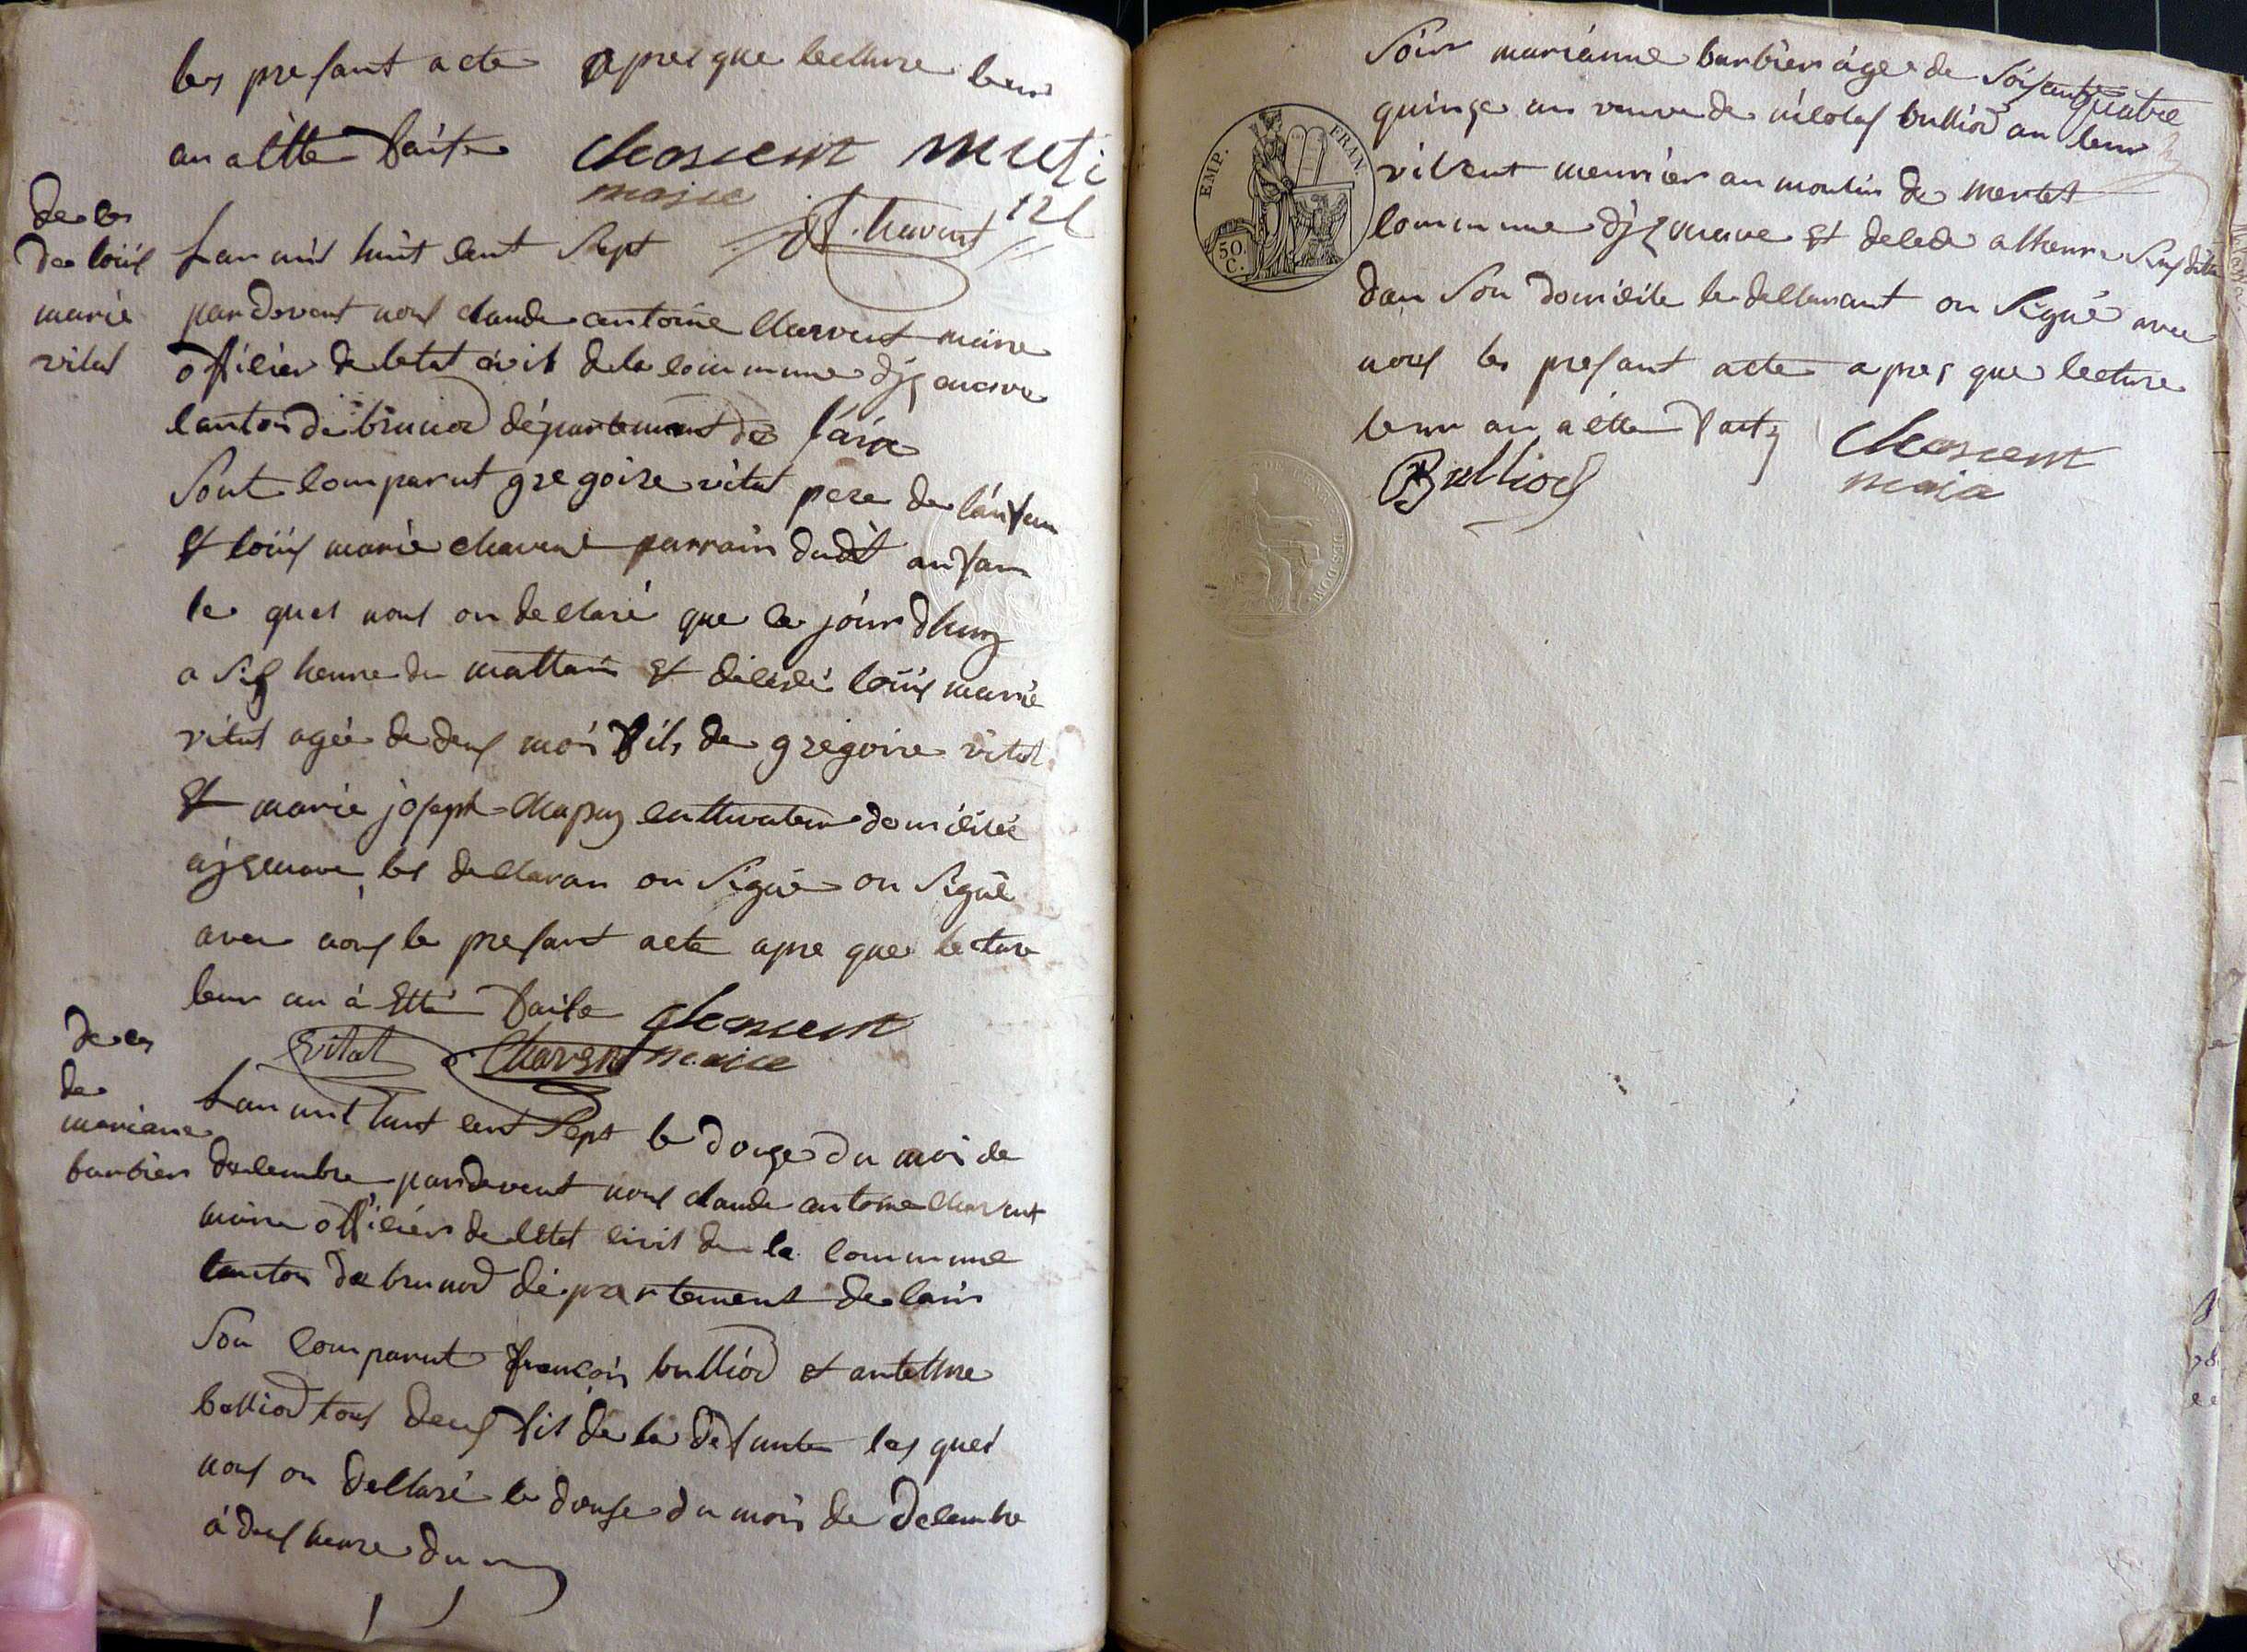 les presant acte apres que lecture leur
an a ette faite Charvent
maire
dece
de loüis
marie
vital
Lan mil huit cent sept
pardevent nous claude antoine Charvent maire
officier de letat civil de la commune dizenave
canton de brenod département de l'ain
Sont comparut gregoire vital pere de l'anfan
et loüis marie chavent parrain dudit anfan
le quel nous on declaré que ce jour dhuy
a six heure du mattain et décédé loüis marie
vital agée de deux moi fils de gregoire vital
et marie joseph Chapuy cultivateur domicilié
a izenave les declaran on signé on signé
avec nous le presant acte apre que lecture
leur an à Etté faite Charvent
Vital Chavent maire
deces
de
mariane
barbier
Lan mil huit cent sept le douze du moi de
decembre pardevent nous claude antoine Charvent
maire officier de lettat civil de la commune
canton de brenod département de lain
Son comparut françois bulliod et antelme
bulliod tous deux fils de la défunte les quel
nous on declaré le douse du mois de decembre
à deux heure du
soir marianne barbier age de soisante
quinze an veuve de nicolas bulliod an leur
vivent meunier au moulin de mertet
commune dizenave et décédé a lheure susditte
dan son domicile le declarant on signé avec
nous les presant acte apres que lecture
leur an a ette faite Charvent
Bulliod maire
EMP. FRAN.
50.
C.